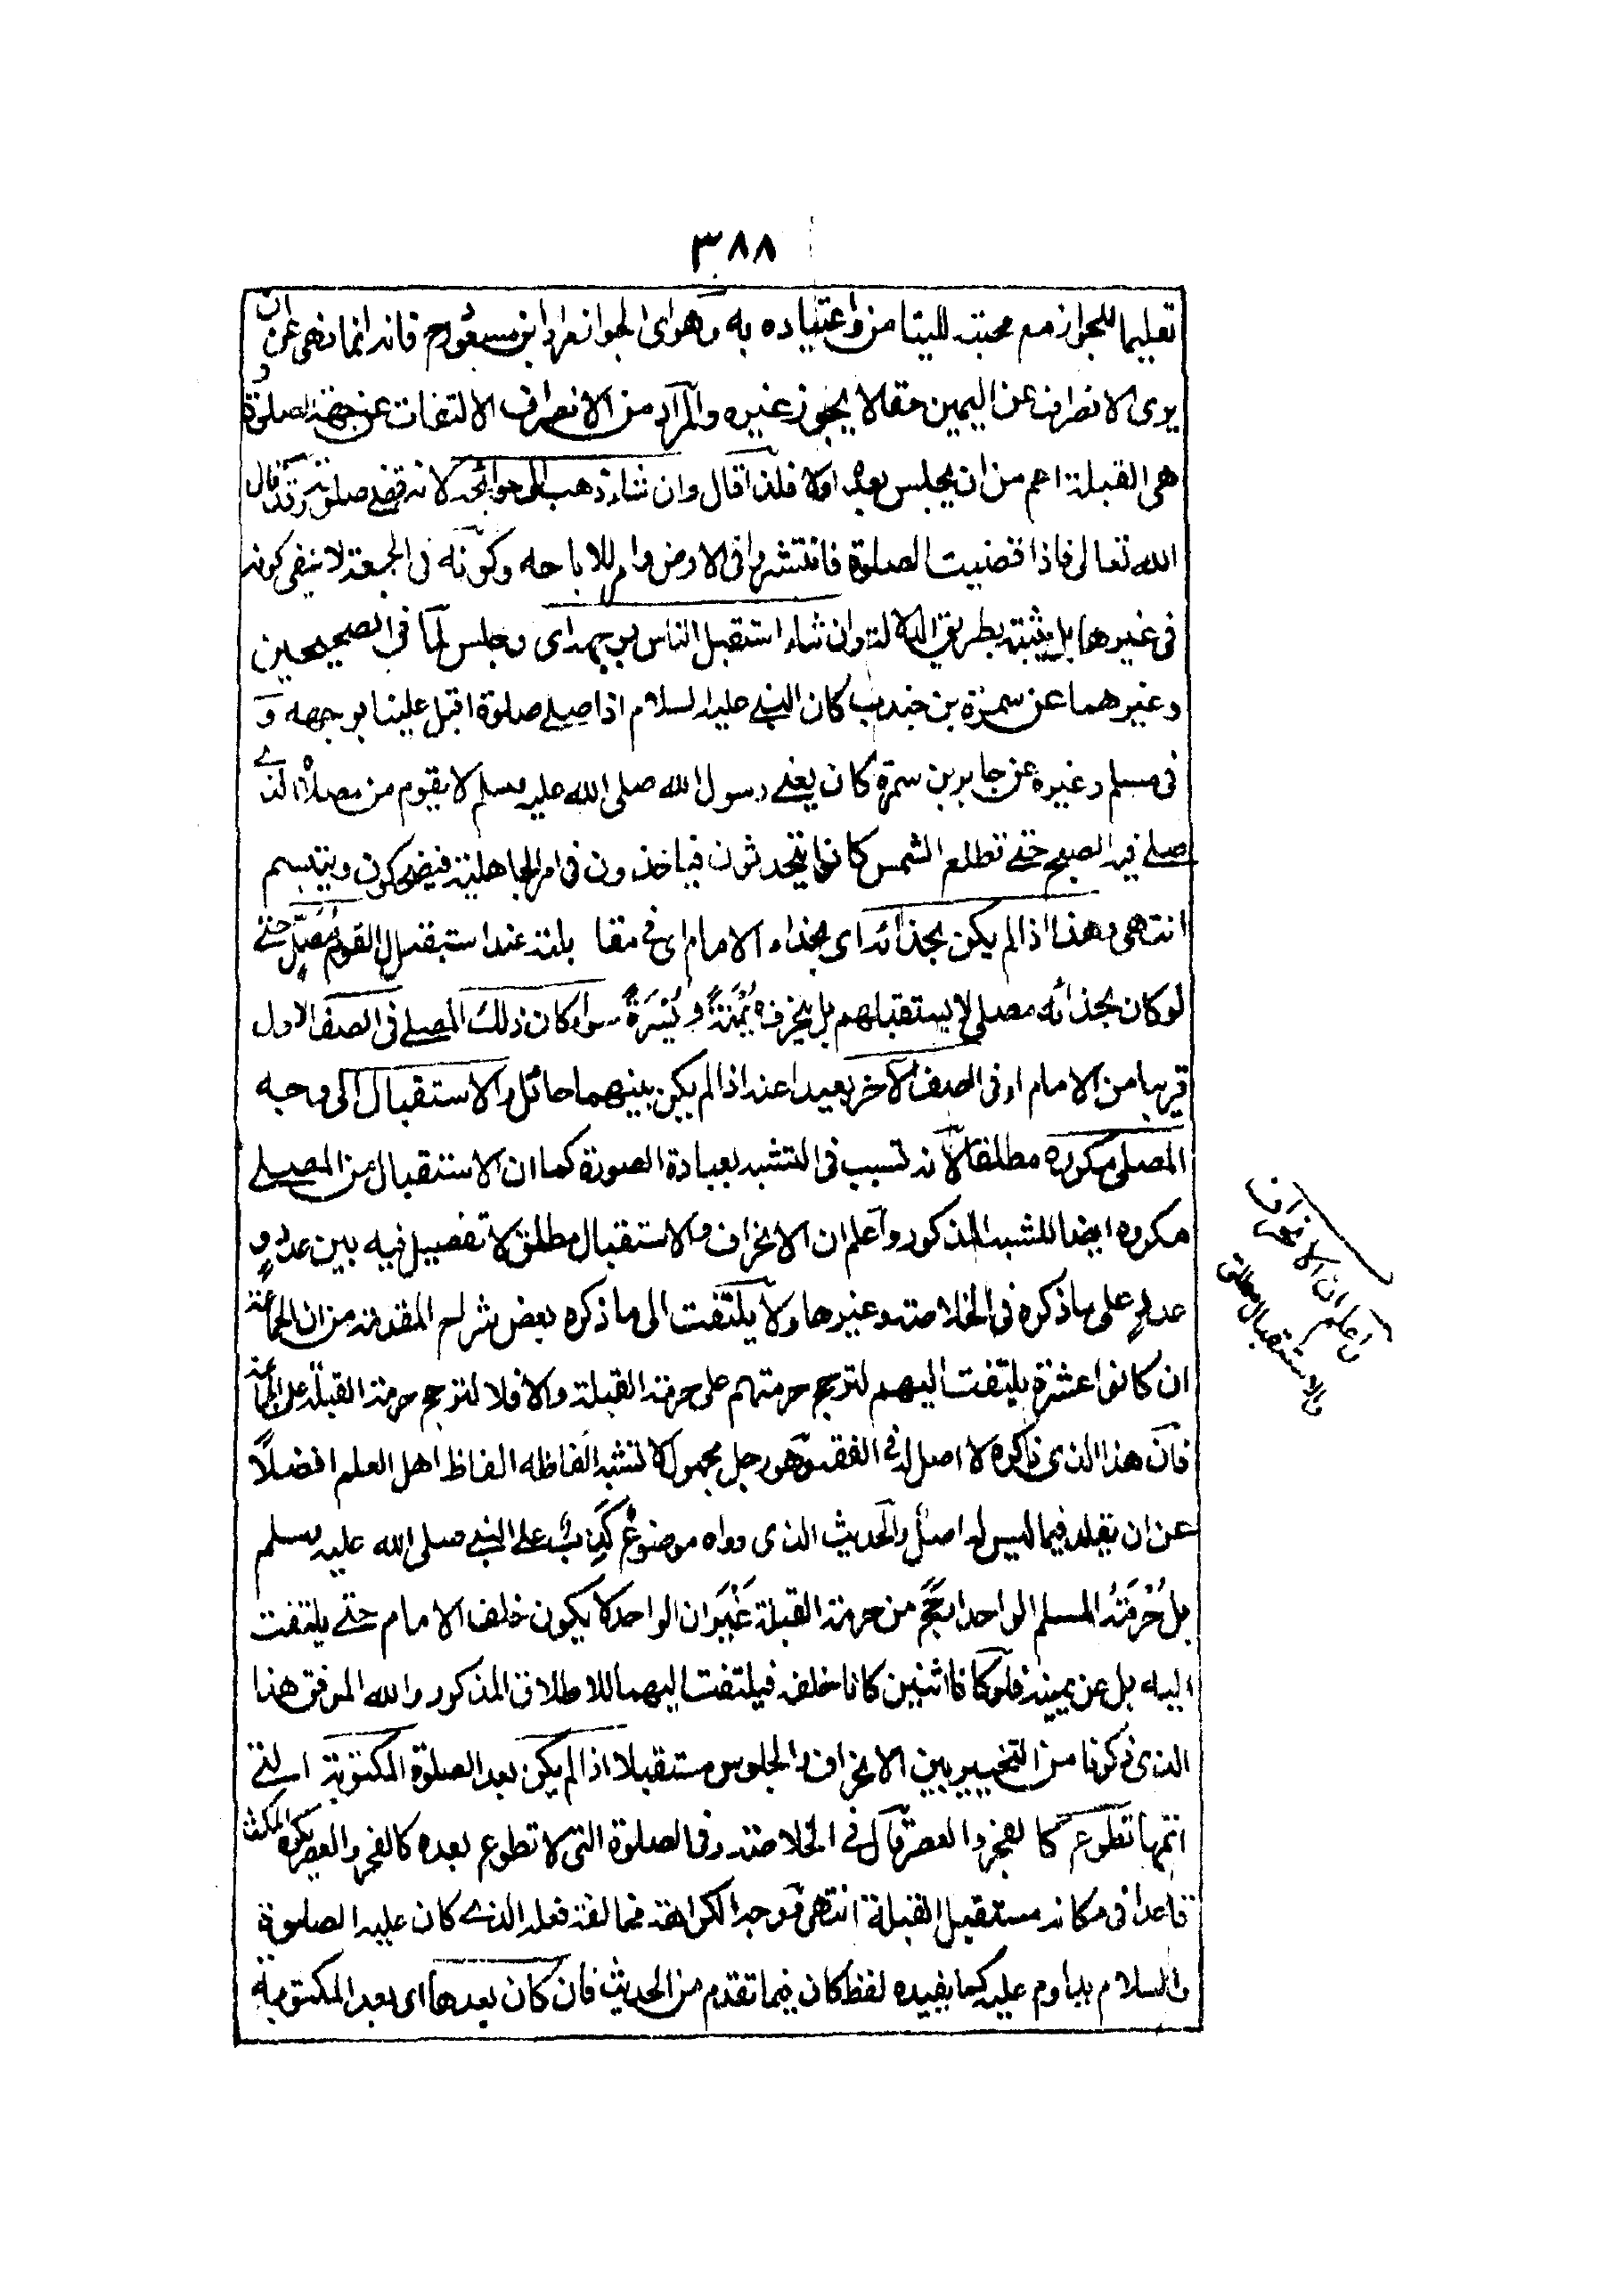 ٣٨٨
تعليما للجواز مع محبته للتيامن واعتياده به وهو اى الجواز مراد ابن مسعود رح فانه انما نهى عن ان
يرى الانصراف عن اليمين حقا لا يجوز غيره والمراد من الانصراف الالتفات عن جهة الصلوة و
هى القبلة اعم من ان يجلس بعده اولا فلذا قال وان شاء ذهب الى حوائجه لانه قضى صلوته وقد قال
الله تعالى فاذا قضيت الصلوة فانتشروا فى الارض والامر للاباحه وكونه فى الجمعة لا ينفى كونه
فى غيرها بل يثبته بطريق الدلالة وان شاء استقبل الناس بوجهه اى وجلس لما فى الصحيحين
وغيرهما عن سمرة بن جندب كان النبى عليه السلام اذا صلى صلوة اقبل علينا بوجهه و
فى مسلم وغيره عن جابر بن سمرة كان يعنى رسول الله صلى الله عليه وسلم لا يقوم من مصلاه الذى
صلى فيه الصبح حتى تطلع الشمس كانوا يتحدثون فياخذون فى امر الجاهلية فيضحكون ويتبسم
انتهى وهذا اذا لم يكن بحذائه اى بحذاء الامام اى فى مقابلته عند استقبال القوم مصل حتى
لو كان بحذائه مصلى لا يستقبلهم بل ينحرف يُمْنَةً و يُسْرَةً سواء كان ذلك المصلى فى الصف الاول
قريبا من الامام او فى الصف الآخر بعيدا عنه اذا لم يكن بينهما حائل والاستقبال الى وجه
المصلى مكروه مطلقا لانه تسبب فى التشبه بعبادة الصورة كما ان الاستقبال من المصلى
مكروه ايضا للشبه المذكور واعلم ان الانحراف والاستقبال مطلق لا تفصيل فيه بين عدد و
عدد على ما ذكره فى الخلاصة وغيرها ولا يلتفت الى ما ذكره بعض شراح المقدمة من ان الجماعة
ان كانوا عشرة يلتفت اليهم لترجح حرمتهم على حرمة القبلة والا فلا لترجح حرمة القبلة على الجماعة
فان هذا الذى ذكره لا اصل له فى الفقه وهو رجل مجهول لا تشبه الفاظه الفاظ اهل العلم فضلاً
عن ان يقلد فيما ليس له اصل والحديث الذى رواه موضوع كذب على النبى صلى الله عليه وسلم
بل حُرْمَةُ المسلم الواحد ارجح من حرمة القبلة غَيْرَ ان الواحد لا يكون خلف الامام حتى يلتفت
اليه بل عن يمينه فلو كانا اثنين كانا خلفه فيلتفت اليهما للاطلاق المذكور والله الموفق هذا
الذى ذكرنا من التخيير بين الانحراف والجلوس مستقبلا اذا لم يكن بعد الصلوة المكتوبة التى
اتمها تطوع كالفجر والعصر قال فى الخلاصة وفى الصلوة التى لا تطوع بعده كالفجر والعصر يكره المكث
قاعدا فى مكانه مستقبل القبلة انتهى فوجه الكراهة مخالفة فعله الذى كان عليه الصلوة
والسلام يداوم عليه كما يفيده لفظ كان فيما تقدم من الحديث فان كان بعدها اى بعد المكتوبة
واعلم ان الانحراف
والاستقبال مطلق